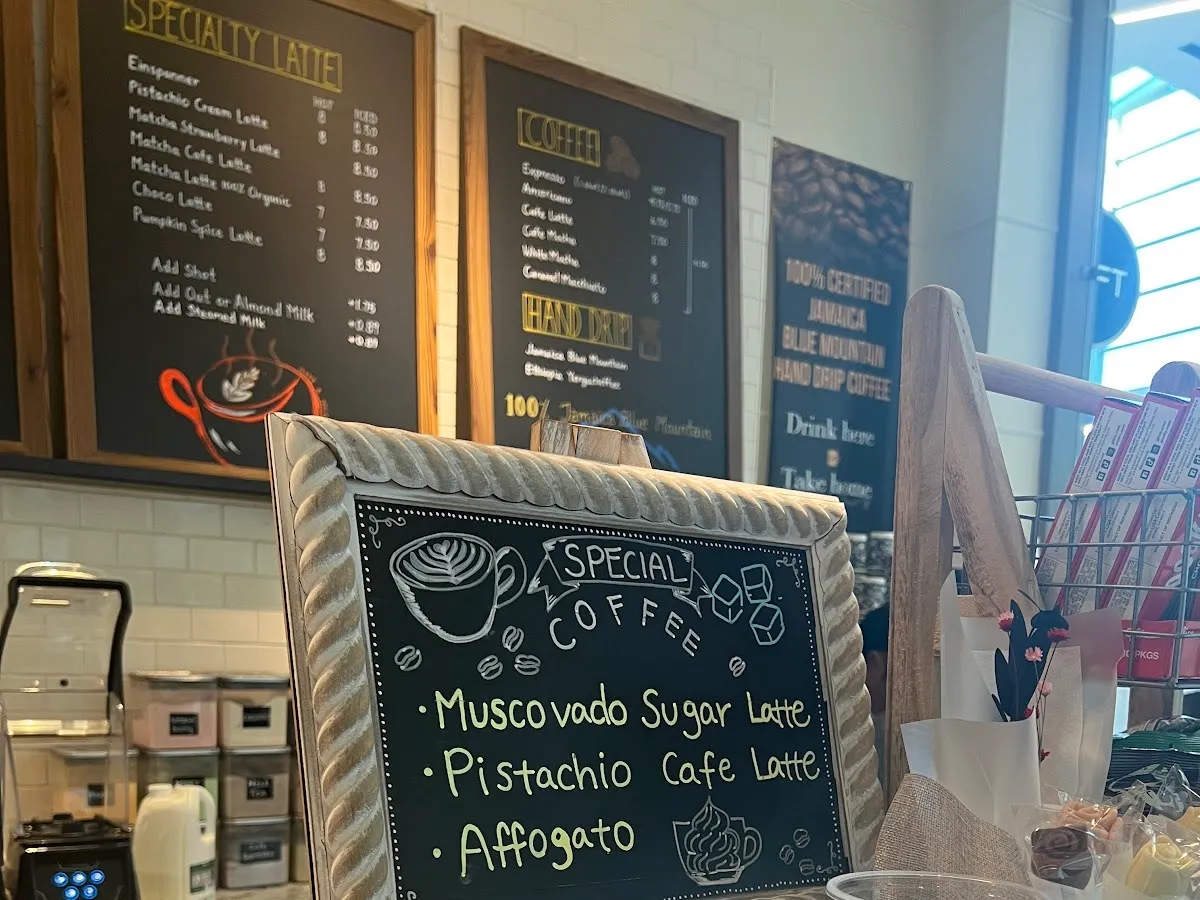 SPECIALTY LATTE
HOT ICED
Einspanner 8 8.50
Pistachio Cream Latte 8 8.50
Matcha Strawberry Latte 8.50
Matcha Cafe Latte 8 8.50
Matcha Latte 100% Organic 7 7.50
Choco Latte 7 7.50
Pumpkin Spice Latte 8 8.50
Add Shot +1.75
Add Oat or Almond Milk
Add Steamed Milk
COFFEE
Espresso
Americano
Cafe Latte
Cafe Mocha
White Mocha
Caramel Macchiato
HAND DRIP
Jamaica Blue Mountain
Ethiopia Yergacheffee
100% Jamaica Blue Mountain
100% CERTIFIED
JAMAICA
BLUE MOUNTAIN
HAND DRIP COFFEE
Drink here
Take home
SPECIAL
COFFEE
• Muscovado Sugar Latte
• Pistachio Cafe Latte
• Affogato
PKGS